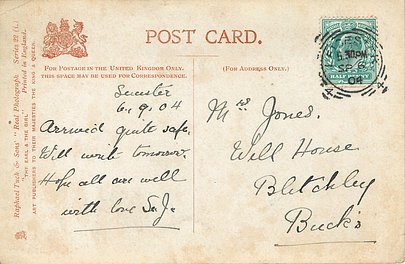 POST CARD.
FOR POSTAGE IN THE UNITED KINGDOM ONLY,
THIS SPACE MAY BE USED FOR CORRESPONDENCE.
(FOR ADDRESS ONLY.)
Raphael Tuck & Sons' "Real Photograph" Series 22 (I.)
"THE EARL & THE GIRL" Printed in England.
ART PUBLISHERS TO THEIR MAJESTIES THE KING & QUEEN.
HALF PENNY
6.30PM
SP 6
04
Leicester
6.9.04
Arrived quite safe.
Will write tomorrow.
Hope all are well
with love S.J.
Mrs Jones.
Well House
Bletchley
Bucks